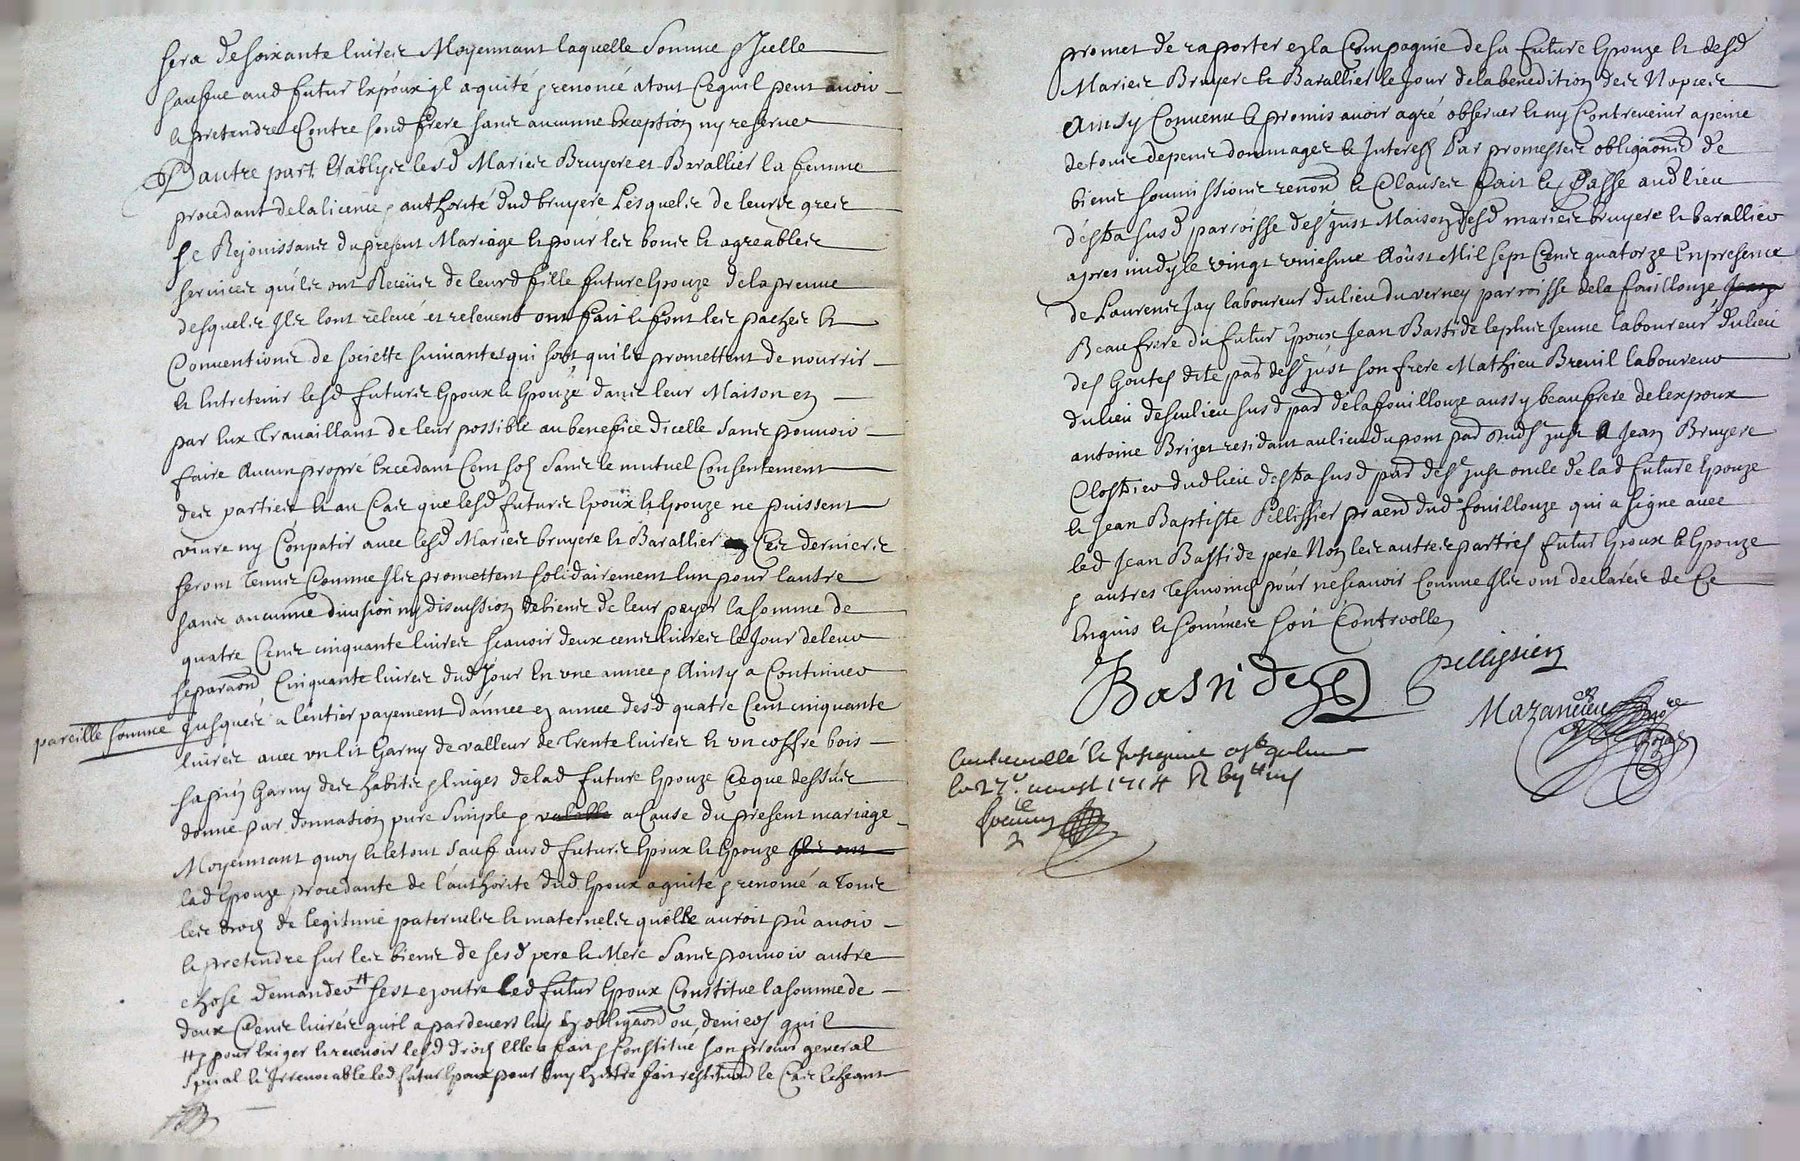 sera de soixante livres Moyennant laquelle somme p Icelle
saufve aud futur Expoux jl a quité p renoncé a tout Cequil peut avoir
& pretendre Contre sond frere sans aucunne Exception ny reserve
D'autre part Establys lesd Mariés Bruyere et Barallier la femme
procedant de la licence p authorité dud bruyere Lesquels de leurs grés
se Rejouissans du present Mariage & pour les bons & agreables
services qu'ils ont Receus de leurd fille future Epouze de la preuve
desquels Ils l'ont relevé et relevent ont fait & font les paches &
Conventions de societte suivantes qui sont quils promettent de nourrir
& Entretenir lesd futurs Epoux & Epouze dans leur Maison en
par Eux Travaillant de leur possible au benefice d'icelle sans pouvoir
faire Aucun propre Excedant Cent sols sans le mutuel Consentement
des parties & au Cas que lesd futurs Epoux & Epouze ne puissent
vivre ny Conpatir avec lesd Mariés bruyere & Barallier Ces derniers
seront Tenus Comme Ils promettent solidairement l'un pour l'autre
sans aucunne division ny discussion de biens de leur payer la somme de
quatre Cens cinquante livres scavoir deux cens livres le Jour de leur
separaon Cinquante livres dud Jour En une année p Ainsy a Continuer
pareille somme Jusques a l'entier payement d'année en année desd quatre Cent cinquante
livres avec un lit Garny de valleur de Trente livres & un coffre bois
sapin Garny des habits p linges de lad future Epouze Ce que dessus
donné par donnation pure simple p valable a Cause du present mariage
Moyennant quoy & le tout sauf ausd futurs Epoux & Epouze Ils ont
lad Epouze procedante de l'authorité dud Epoux a quité p renoncé a Tous
les drois de legitime paternels & maternels qu'elle auroit pû avoir
& pretendre sur les biens de sesd pere & Mere sans pouvoir autre
chose demander # sest en outre led futur Epoux Constitue la somme de
deux Cens livres qu'il a pardevers luy en obligaon ou deniers qu'il
# p pour Exiger & recevoir lesd drois Elle a fait p Constitué son procur general
special & Irrevocable led futur Epoux pour luy En Estre fait restitution le Cas Escheant
promet de raporter en la Compagnie de sa future Epouze & desd
Mariés Bruyere & Barallier le Jour de la benedition des Nopces
Ainsy Convenu & promis avoir agré observer & ny Contrevenir a peine
de tous depens dommages & Interets Par promesses obligaons de
biens soumissions renond & Clauses fait & Passe aud lieu
d'Esba susd parroisse de st Just Maison desd mariés bruyere & barallier
apres midy le vingt uniesme Aoûst Mil sept Cens quatorze En presence
de Laurens Jay laboureur du lieu du verney parroisse de la fouillouze Jean
Beaufrere du futur Epoux Jean Bastide le plus Jeune laboureur du lieu
des Goutes dite par de st just son frere Mathieu Breuil laboureur
du lieu des mlieu susd par de la fouillouze aussy beaufrere de l'expoux
antoine Brizet residant au lieu du pont par dud st just & Jean Bruyere
Clostier dud lieu d'Esba susd par de st just oncle de lad future Epouze
& Jean Baptiste Pellissier praen dud fouillouze qui a signe avec
led Jean Bastide pere Non les autres parties futur Epoux & Epouze
p autres Tesmoins pour ne scavoir Comme Ils ont declarés de Ce
Enquis & sommés soit Controolle
Bastide
pellissier
Mazancieu
nore
Royal
Controllé & Insinué
le 27e aoust 1714 R